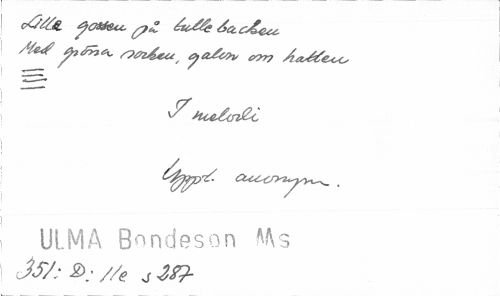 Lilla gossen på tullebacken
Med gröna rocken, galon om hatten
I melodi
Uppt. anonym.
ULMA Bondeson Ms
351: D: 11e s 287